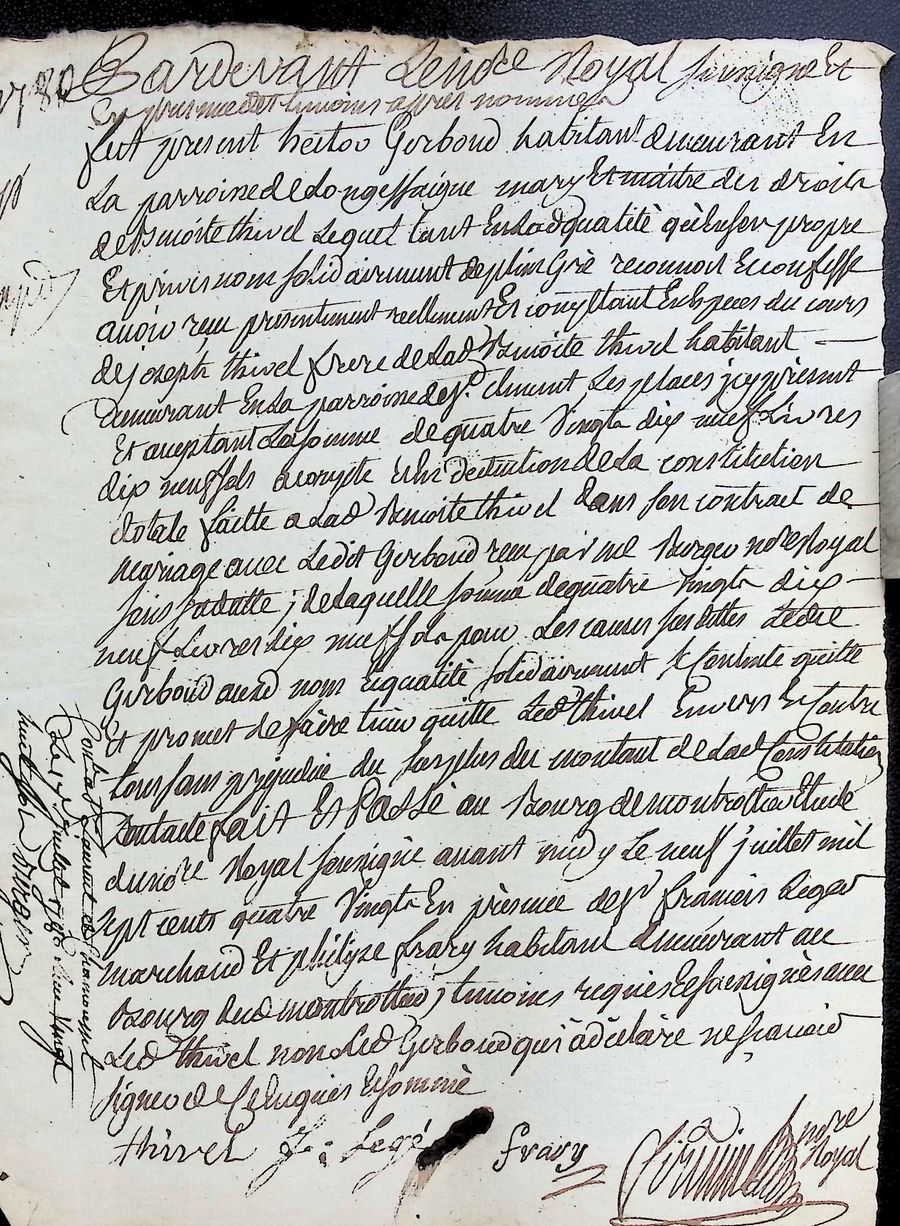 1780
Pardevant Le nore Royal soussigné Et
En presence des temoins apres nommés
fut present hector Gerboud habitant demeurant En
La parroisse de Longessaigne mary Et maitre des droits
de Benoite thivel Lequel tant En Lad qualité qu'En son propre
Et privé nom solidairement de plein Gré reconnoit Et confesse
avoir reçu presentement reellement Et comptant En Especes du cours
de joseph thivel frere de Lad Benoite thivel habitant
Demeurant En La parroisse de St. Clement Les places icy present
Et acceptant La somme de quatre Vingts dix neuf Livres
dix neuf sols a compte Et En deduction de La constitution
dotale faitte a Lad Benoite thivel dans son contract de
mariage avec Ledit Gerboud reçu par me nore Royal
sous sa datte ; de laquelle somme de quatre Vingts dix
neuf Livres dix neuf sols pour Les causes susdittes Ledit
Gerboud aud nom Et qualité solidairement se Contente quitte
Et promet de faire tenir quitte Led thivel Envers Et Contre
tous sans prejudice du surplus du montant de Lad Constitution
fait Et Passé au Bourg de montrottier Etude
du nore Royal soussigné avant midy Le neuf juillet mil
sept cents quatre Vingts En presence de Sr françois Leger
marchand Et philipe frary habitant demeurant au
Bourg dud montrottier, temoins requis Et soussignés avec
Led thivel non Led Gerboud qui a declaré ne sçavoir
signer de Ce Enquis Et sommé
thivel f: Legé frary
nore
Royal
juillet 1780